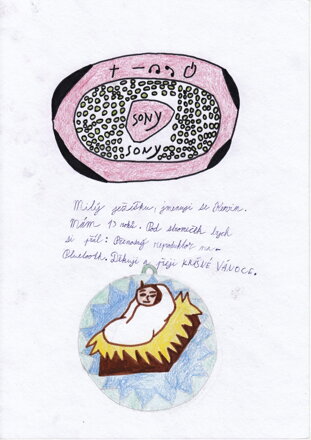 + -
SONY
SONY
Milý ježíšku, jmenuji se Kevin.
Mám 13 roků. Pod stromeček bych
si přál: Přenosný reproduktor na
Bluetooth. Děkuji a přeji KRÁSNÉ VÁNOCE.